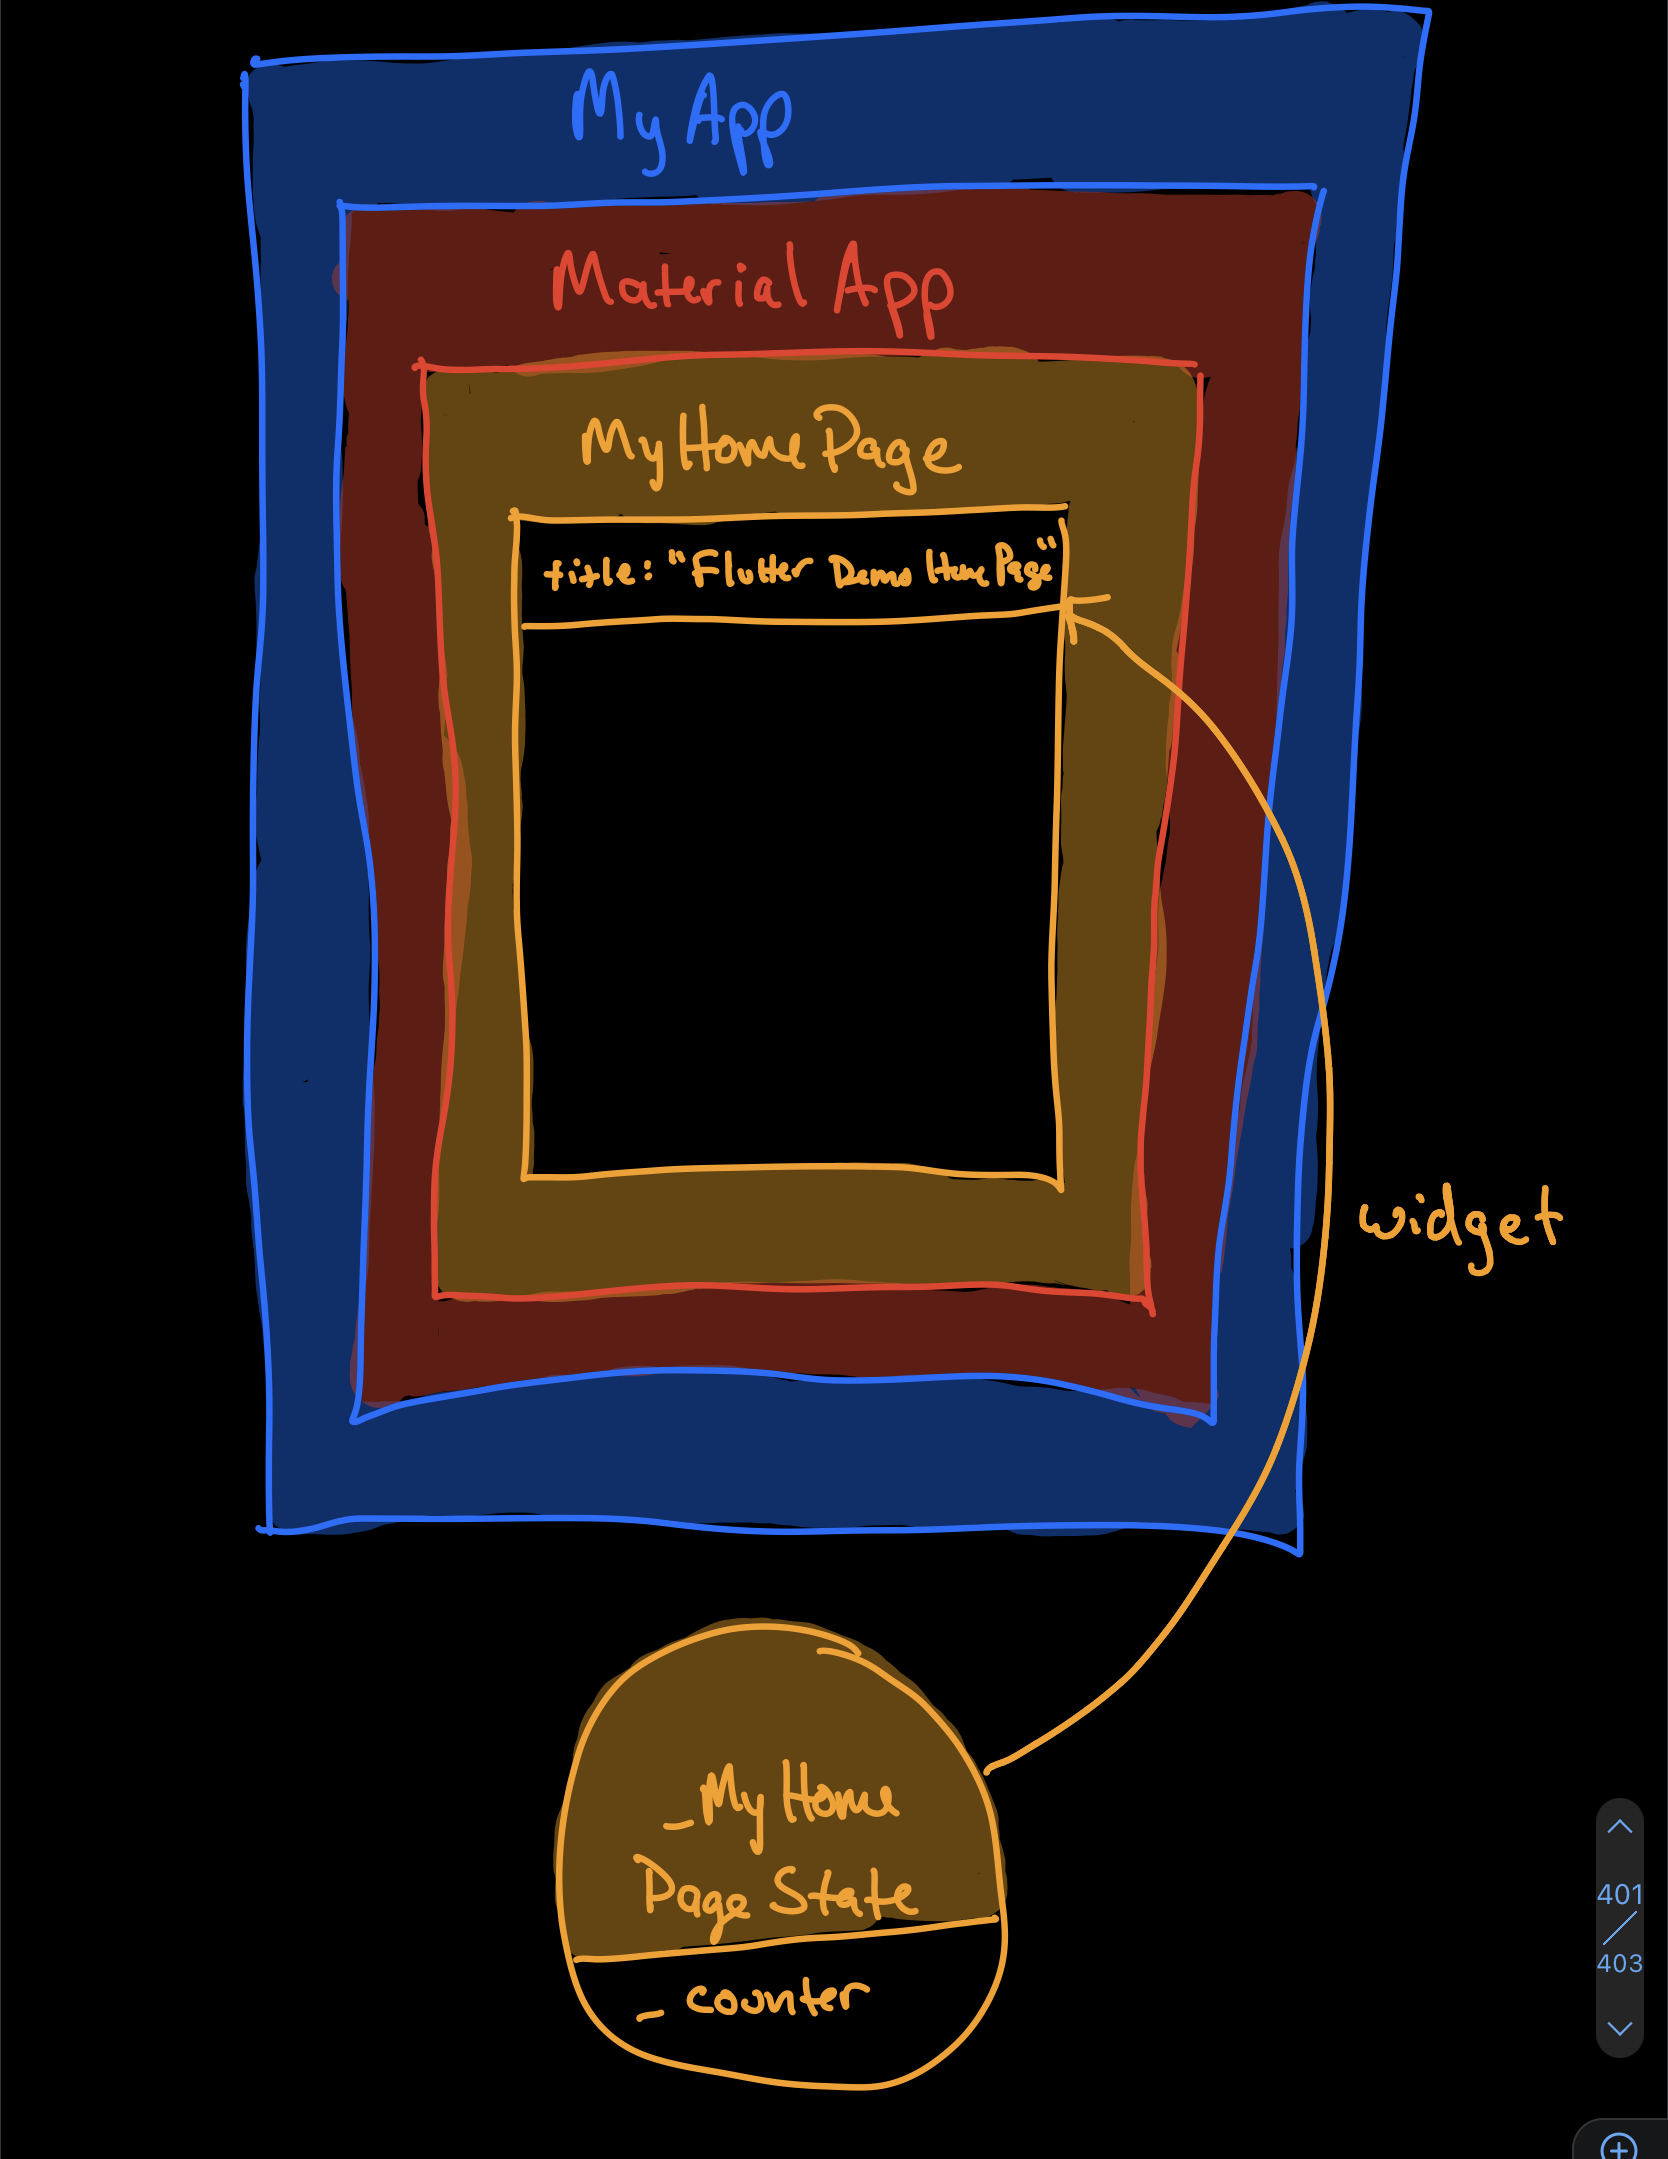 My App
Material App
MyHomePage
title: "Flutter Demo Home Page"
widget
_My Home
Page State
_ counter
401
403